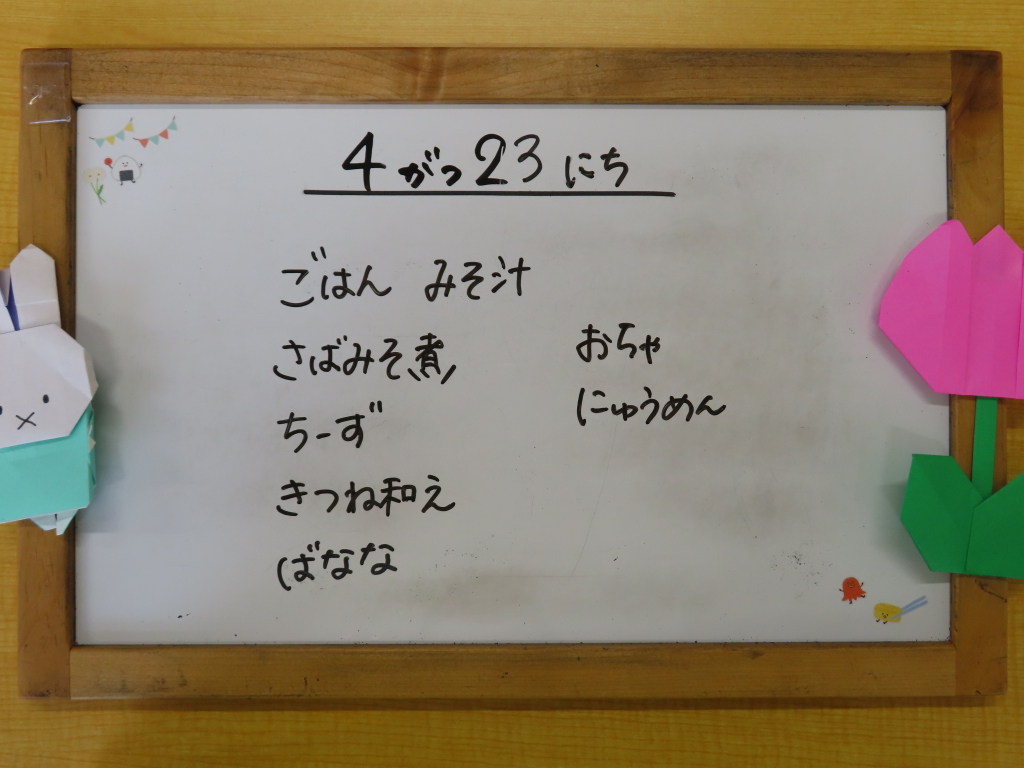 4がつ23にち
ごはん みそ汁
さばみそ煮
ちーず
きつね和え
ばなな
おちゃ
にゅうめん